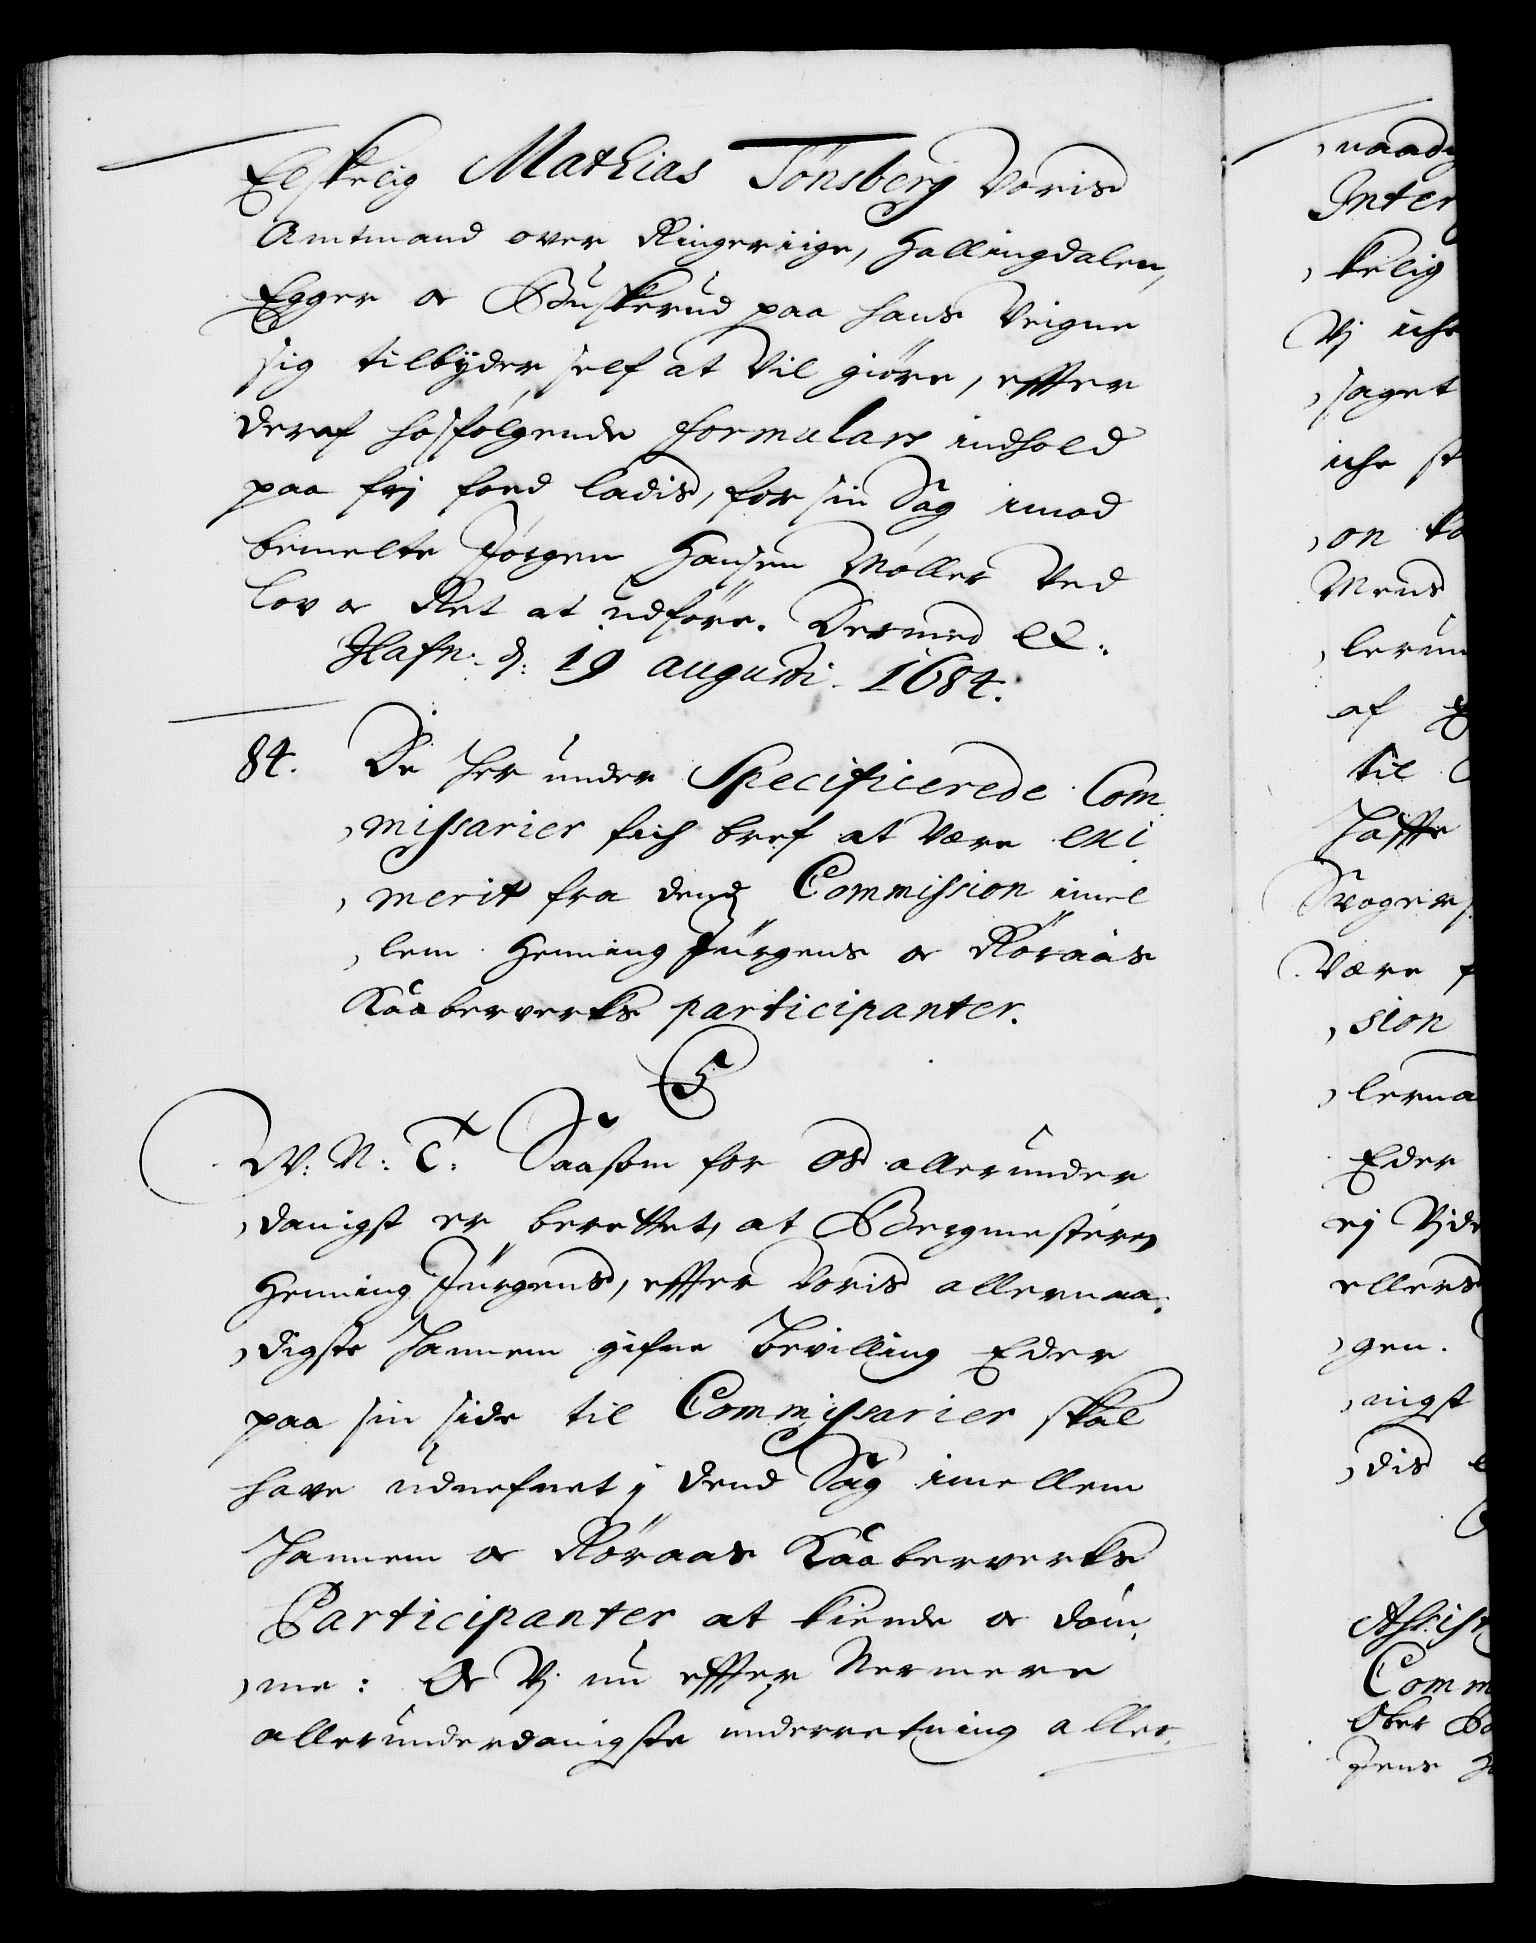 Elskelig Mathias Tönsberg Voris
Amtmand over Ringeriige, Hallingdalen,
Egger oc Buskerud paa hans Veigne
sig tilbyder self at Vil giöre, effter
deraf hosfölgende formulars indhold
paa frj foed ladis, for sin Sag imod
bemelte Jörgen Hansen Möller Ved
lov oc Ret at udföre. Dermed &.
Hafn: d: 19 augusti. 1684.
84. De her under Specificerede Com
missarier fich bref at Være exi
merit fra dend Commission imel
lem Henning Jürgens oc Röraas
Kaaberverks participanter.
C5
W: N: T: Saasom for Os allerunder
danigst er berettet, at Bergmesteren
Henning Jürgens, effter Voris allernaa
digste hannem gifne bevilling Eder
paa sin side til Commissarier skal
have udnefnet j dend Sag imellem
hannem oc Röraas Kaaberverks
Participanter at kiende oc döm
me: Oc Vj nu effter Nermere
allerunderdanigste underretning aller
naadig
Inter
kelig
Vj iche
saget
iche st
on ko
Mens
lerun
af
til
haffve
Svoger
Være f
sion
lerna
Eder
ej Vjde
ellers
gen.
nigst
dis
Assist
Comm
Ober
Jens